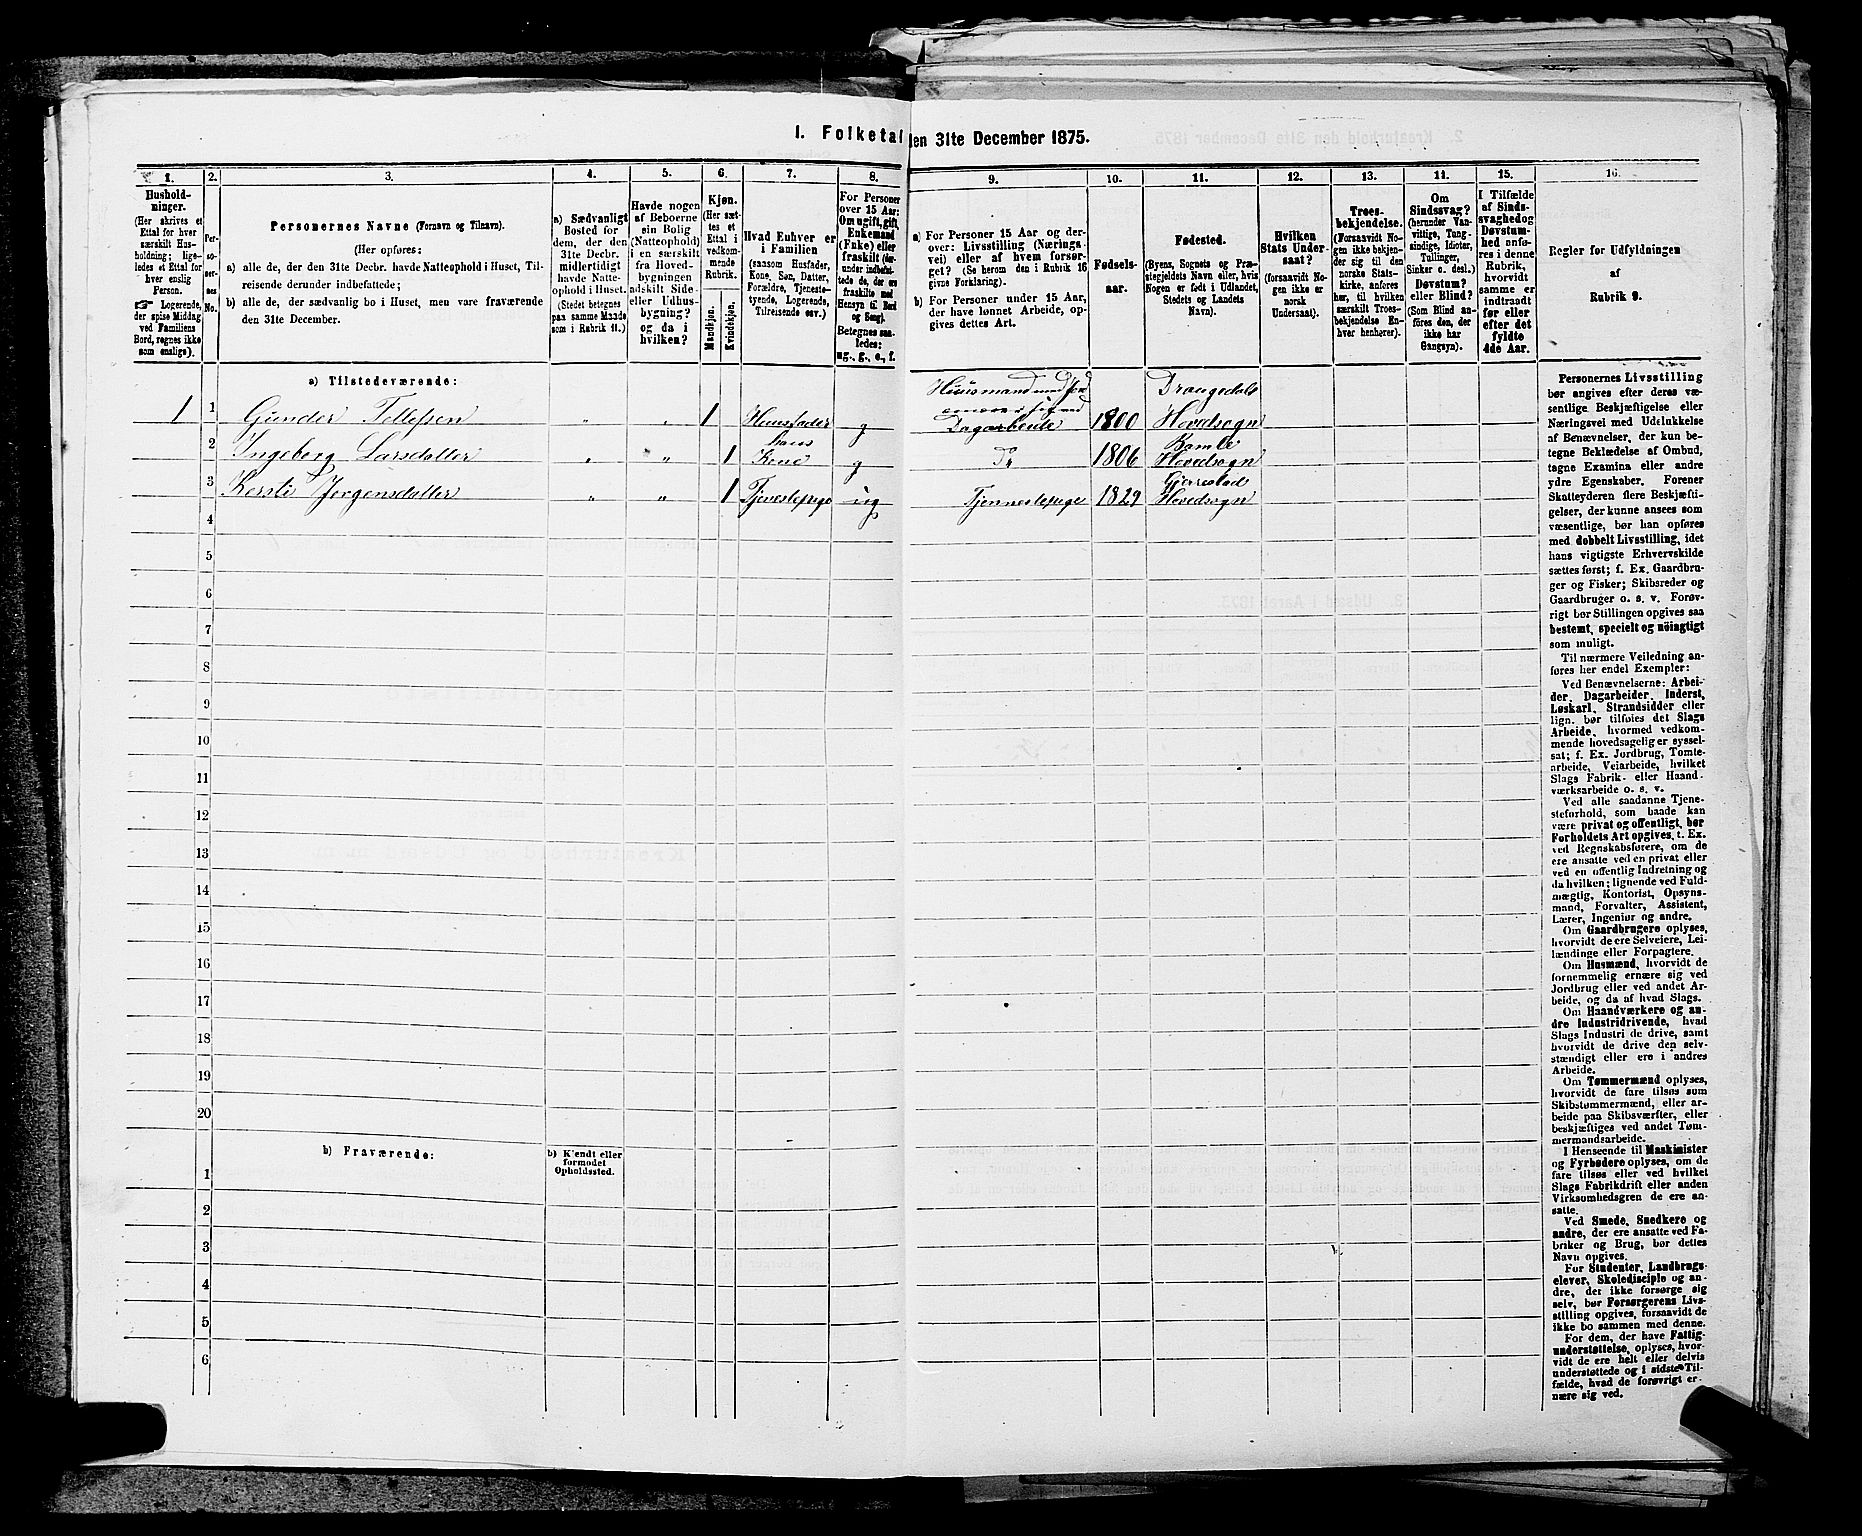 I. Folketal den 31te December 1875.
1.
Hushold-
ninger.
(Her skrives et
Ettal for hver
særskilt Hus-
holdning; lige-
ledes et Ettal for
hver enslig
Person.
☞ Logerende,
der spise Middag
ved Familiens
Bord, regnes ikke
som enslige).
2.
Per-
so-
ner-
nes
No.
3.
Personernes Navne (Fornavn og Tilnavn).
(Her opføres:
a) alle de, der den 31te Decbr. havde Natteophold i Huset, Til-
reisende derunder indbefattede;
b) alle de, der sædvanlig bo i Huset, men vare fraværende
den 31te December.
4.
a) Sædvanligt
Bosted for
dem, der den
31te Decbr.
midlertidigt
havde Natte-
ophold i Huset.
(Stedet betegnes
paa samme Maade
som i Rubrik 11.)
5.
Havde nogen
af Beboerne
sin Bolig
(Natteophold)
i en særskilt
fra Hoved-
bygningen
adskilt Side-
eller Udhus-
bygning?
og da i
hvilken?
6.
Kjøn.
(Her sæt-
tes et
Ettal i
vedkom-
mende
Rubrik.
Mandkjøn.
Kvindekjøn.
7.
Hvad Enhver er
i Familien
(saasom Husfader,
Kone, Søn, Datter,
Forældre, Tjeneste-
tyende, Logerende,
Tilreisende osv.)
8.
For Personer
over 15 Aar:
Om ugift, gift,
Enkemand
(Enke) eller
fraskilt (der-
under indbefat-
tede de, der ere
fraskilte med
Hensyn til Bord
og Seng).
Betegnes saa-
ledes:
ug., g., e., f.
9.
a) For Personer 15 Aar og der-
over: Livsstilling (Nærings-
vei) eller af hvem forsør-
get? (Se herom den i Rubrik 16
givne Forklaring).
b) For Personer under 15 Aar,
der have lønnet Arbeide, op-
gives dettes Art.
10.
Fødsels-
aar.
11.
Fødested.
(Byens, Sognets og Præ-
stegjeldets Navn eller, hvis
Nogen er født i Udlandet,
Stedets og Landets
Navn).
12.
Hvilken
Stats Under-
saat?
(forsaavidt No-
gen ikke er
norsk
Undersaat).
13.
Troes-
bekjendelse.
(Forsaavidt No-
gen ikke bekjen-
der sig til den
norske Stats-
kirke, anføres
her, til hvilken
særskilt Troes-
bekjendelse En-
hver henhører).
14.
Om
Sindssvag?
(herunder Van-
vittige, Tung-
sindige, Idioter,
Tullinger,
Sinker o. desl.)
Døvstum?
eller Blind?
(Som Blind an-
føres den, der
ikke har
Gangsyn).
15.
I Tilfælde
af Sinds-
svaghed og
Døvstum-
hed anfø-
res i denne
Rubrik,
hvorvidt
samme er
indtraadt
før eller
efter det
fyldte
4de Aar.
16.
Regler for Udfyldningen
af
Rubrik 9.
a) Tilstedeværende:
1 1 Gunder Tellefsen " " 1 Huusfader g Huusmand med Jord Dagarbeide 1800 Drangedals Hovedsogn
2 Ingeborg Larsdatter " " 1 hans Kone g Do 1806 Bamle Hovedsogn
3 Kersti Jørgensdatter " " 1 Tjenestepige ug Tjennestepige 1829 Gjerrestad Hovedsogn
4
5
6
7
8
9
10
11
12
13
14
15
16
17
18
19
20
b) Fraværende:
b) Kjendt eller
formodet
Opholdssted.
1
2
3
4
5
6
Personernes Livsstilling
bør angives efter deres væ-
sentlige Beskjæftigelse eller
Næringsvei med Udelukkelse
af Benævnelser, der kun be-
tegne Beklædelse af Ombud,
tagne Examina eller andre
ydre Egenskaber. Forener
Skatteyderen flere Beskjæfti-
gelser, der kunne ansees som
væsentlige, bør han opføres
med dobbelt Livsstilling, idet
hans vigtigste Erhvervskilde
sættes først; f. Ex. Gaardbru-
ger og Fisker; Skibsreder og
Gaardbruger o. s. v. Forøv-
rigt bør Stillingen opgives saa
bestemt, specielt og nöiagtigt
som muligt.
Til nærmere Veiledning an-
føres her endel Exempler:
Ved Benævnelserne: Arbei-
der, Dagarbeider, Inderst,
Løskarl, Strandsidder eller
lign. bør tilføies det Slags
Arbeide, hvormed vedkom-
mende hovedsagelig er syssel-
sat; f. Ex. Jordbrug, Tomte-
arbeide, Veiarbeide, hvilket
Slags Fabrik- eller Haand-
værksarbeide o. s. v.
Ved alle saadanne Tjene-
steforhold, som baade kan
være privat og offentligt, bør
Forholdets Art opgives, t. Ex.
ved Regnskabsførere, om de
ere ansatte ved en privat eller
ved en offentlig Indretning og
da hvilken; lignende ved Fuld-
mægtig, Kontorist, Opsyns-
mand, Forvalter, Assistent,
Lærer, Ingeniør og andre.
Om Gaardbrugere oplyses,
hvorvidt de ere Selveiere, Lei-
lændinge eller Forpagtere.
Om Husmænd, hvorvidt de
fornemmelig ernære sig ved
Jordbrug eller ved andet Ar-
beide, og da af hvad Slags.
Om Haandværkere og an-
dre Industridrivende, hvad
Slags Industri de drive, samt
hvorvidt de drive den selv-
stændigt eller ere i andres
Arbeide.
Om Tømmermænd oplyses,
hvorvidt de fare tilsøs som
Skibstømmermænd, eller ar-
beide paa Skibsværfter, eller
beskjæftiges ved andet Tøm-
mermandsarbeide.
I Henseende til Maskinister
og Fyrbødere oplyses, om de
fare tilsøs eller ved hvilket
Slags Fabrikdrift eller anden
Virksomhedsgren de ere an-
satte.
Ved Smede, Snedkere og
andre, der ere ansatte ved Fa-
briker og Brug, bør dettes
Navn opgives.
For Studenter, Landbrugs-
elever, Skoledisciple og an-
dre, der ikke forsørge sig
selv, bør Forsørgerens Livs-
stilling opgives, forsaavidt de
ikke bo sammen med denne.
For dem, der have Fattig-
understøttelse, oplyses, hvor-
vidt de ere helt eller delvis
understøttede og i sidste Til-
fælde, hvad de forøvrigt er-
nære sig ved.